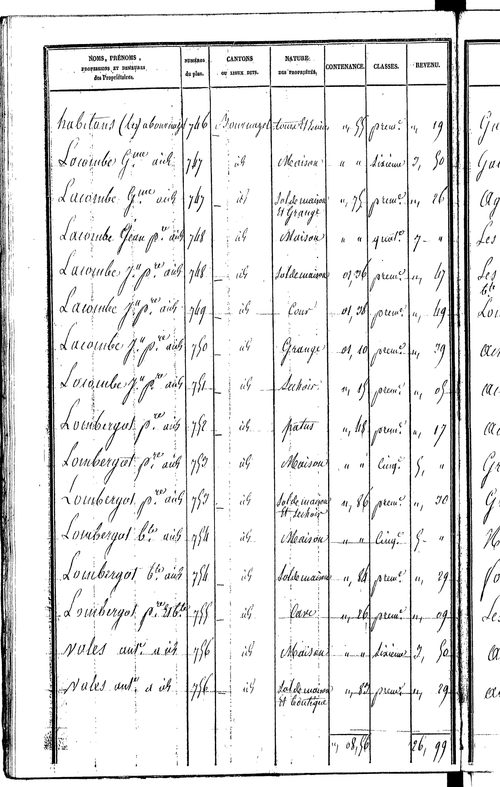 NOMS, PRÉNOMS, PROFESSIONS ET DEMEURES des Propriétaires. NUMÉROS du plan. CANTONS OU LIEUX DITS. NATURE DES PROPRIÉTÉS. CONTENANCE. CLASSES. REVENU.
habitans (les) 746 Cour et " 55 prem.e " 19
Lacombe G.me aîné 747 id Maison " " sixieme 3, 50
Lacombe G.me aîné 747 id Sol de maison et Grange ", 75 prem.e ", 26
Lacombe Jean p.re aîné 748 id Maison " " quat.e 7 - "
Lacombe J.n p.re aîné 748 id Sol de maison 01, 36 prem.e ", 47
Lacombe J.n p.re aîné 749 id Cour 01, 38 prem.e ", 49
Lacombe J.n p.re aîné 750 id Grange 01, 10 prem.e ", 39
Lacombe J.n p.re aîné 751 id Sechoir ", 15 prem.e ", 05
Lombergot p.re aîné 752 id patus ", 48 prem.e ", 17
Lombergot p.re aîné 753 id Maison " " Cinq.e 5, "
Lombergot p.re aîné 753 id Sol de maison et sechoir ", 86 prem.e ", 30
Lombergot b.te aîné 754 id Maison " " Cinq.e 5 - "
Lombergot b.te aîné 754 id Sol de maison ", 84 prem.e ", 29
Lombergot p.re et b.te 755 id Cave ", 26 prem.e ", 09
Vales ant.e à id 756 id Maison " " sixieme 3, 50
Vales ant.e à id 756 id Sol de maison et boutique ", 83 prem.e ", 29
", 08, 56 26, 99